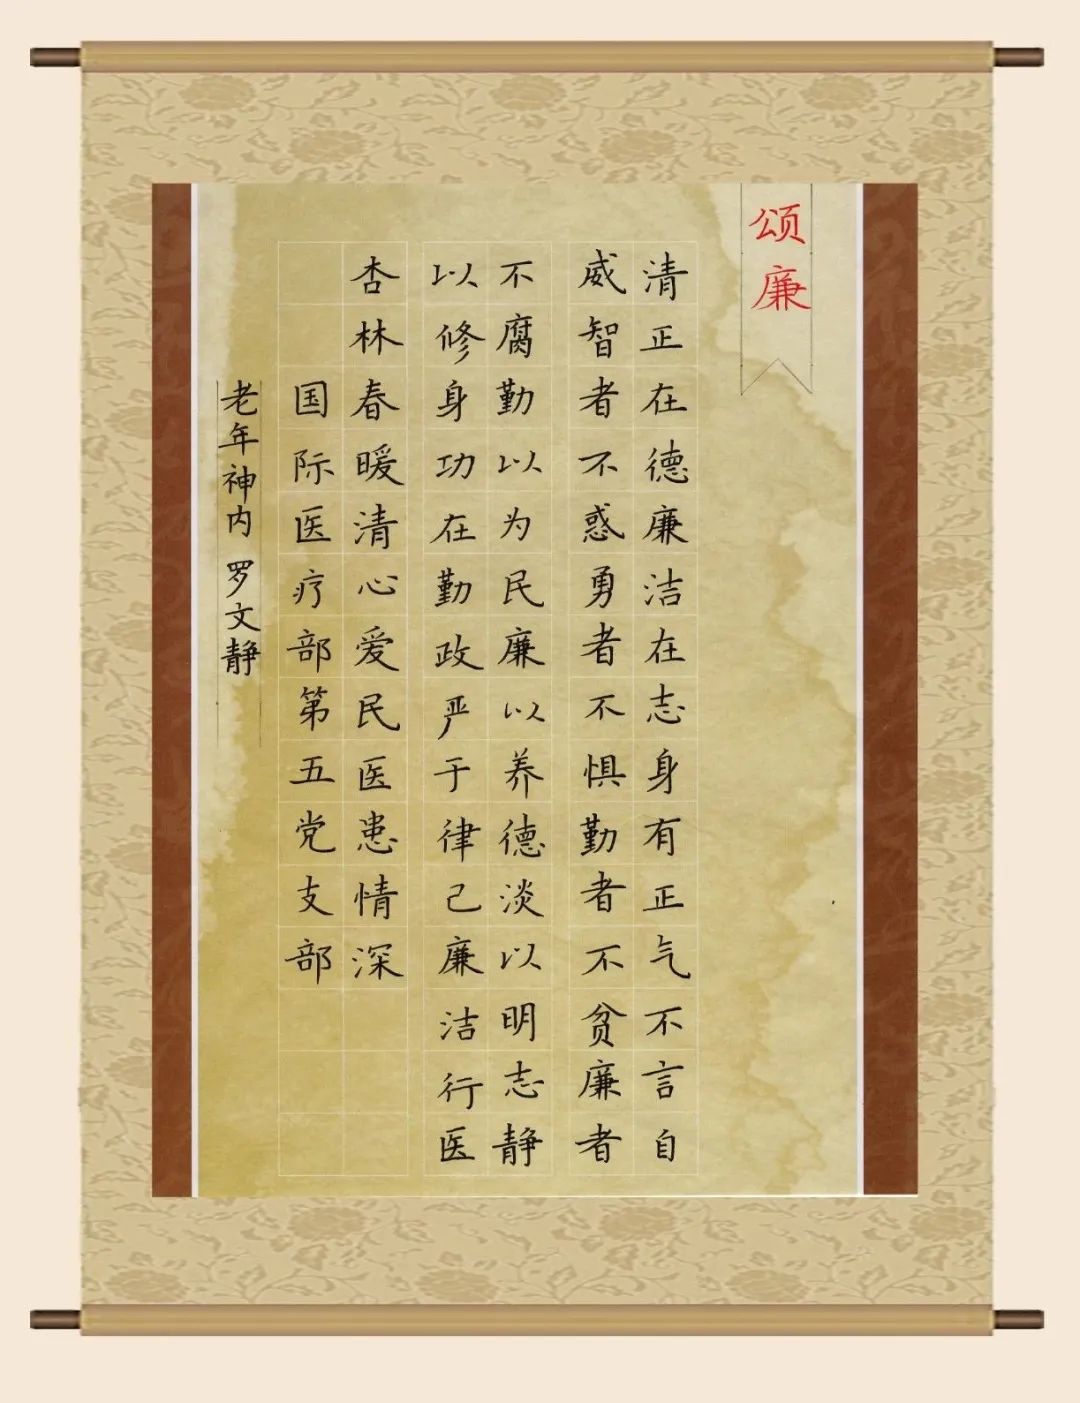 颂廉
清正在德廉洁在志身有正气不言自
威智者不惑勇者不惧勤者不贫廉者
不腐勤以为民廉以养德淡以明志静
以修身功在勤政严于律己廉洁行医
杏林春暖清心爱民医患情深
国际医疗部第五党支部
老年神内 罗文静